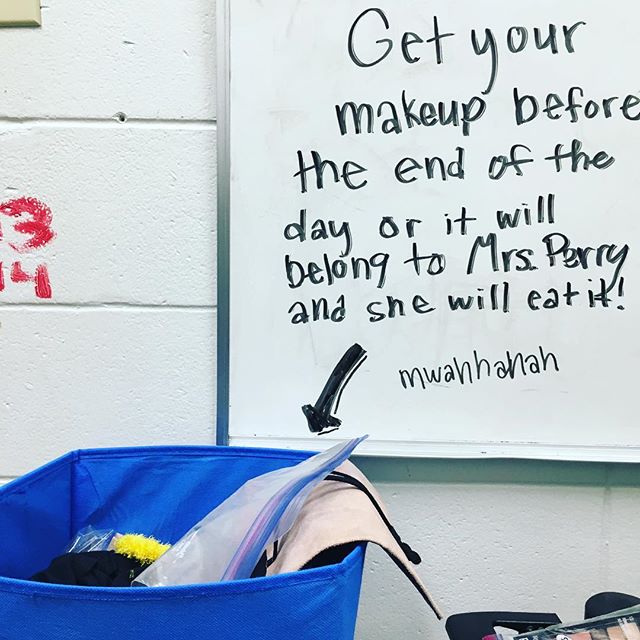 Get your
makeup before
the end of the
day or it will
belong to Mrs. Perry
and she will eat it!
mwahhahah
3
14